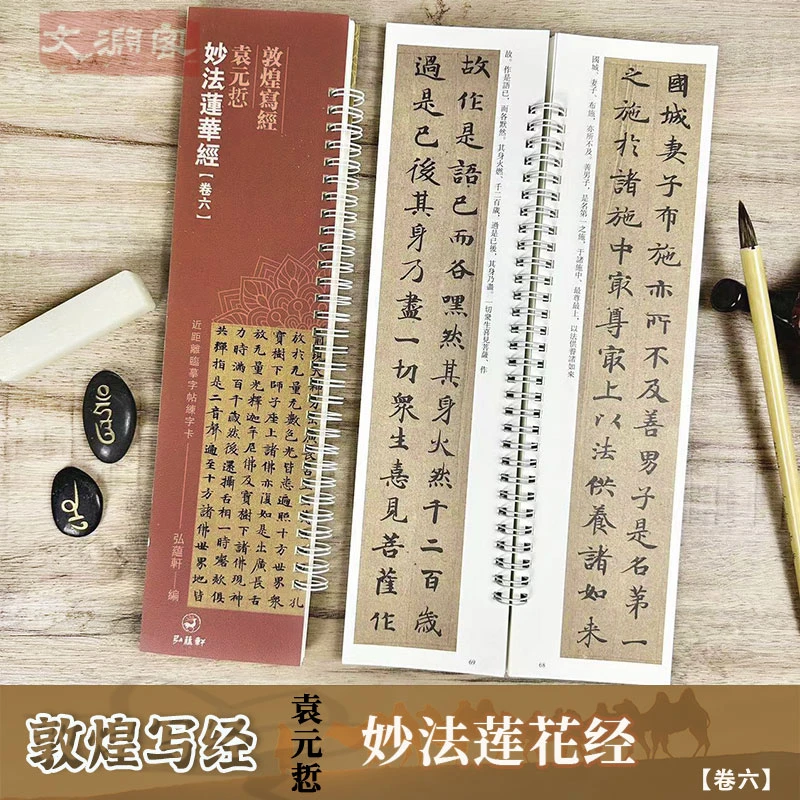 文渊阁
敦煌寫經
袁元悊
妙法蓮華經
【卷六】
近距離臨摹字帖練字卡
弘蘊軒 編
放於無量無數色光皆悉遍照十方世界衆
寶樹下師子座上諸佛亦復如是出廣長舌
放无量光釋迦牟尼佛及寶樹下諸佛現神
力時滿百千歲然後還攝舌相一時謦欬俱
共彈指是二音聲遍至十方諸佛世界地皆
弘蘊軒
故。作是語已,而各默然。其身火燃,千二百歲,過是已後,其身乃盡。一切眾生喜見菩薩,作
故作是語已而各嘿然其身火然千二百歲
過是已後其身乃盡一切衆生憙見菩薩作
69
國城、妻子、布施,亦所不及。善男子,是名第一之施,于諸施中,最尊最上,以法供養諸如來
國城妻子布施亦所不及善男子是名第一
之施於諸施中㝡尊㝡上以法供養諸如来
68
敦煌写经
袁元悊
妙法莲花经
【卷六】